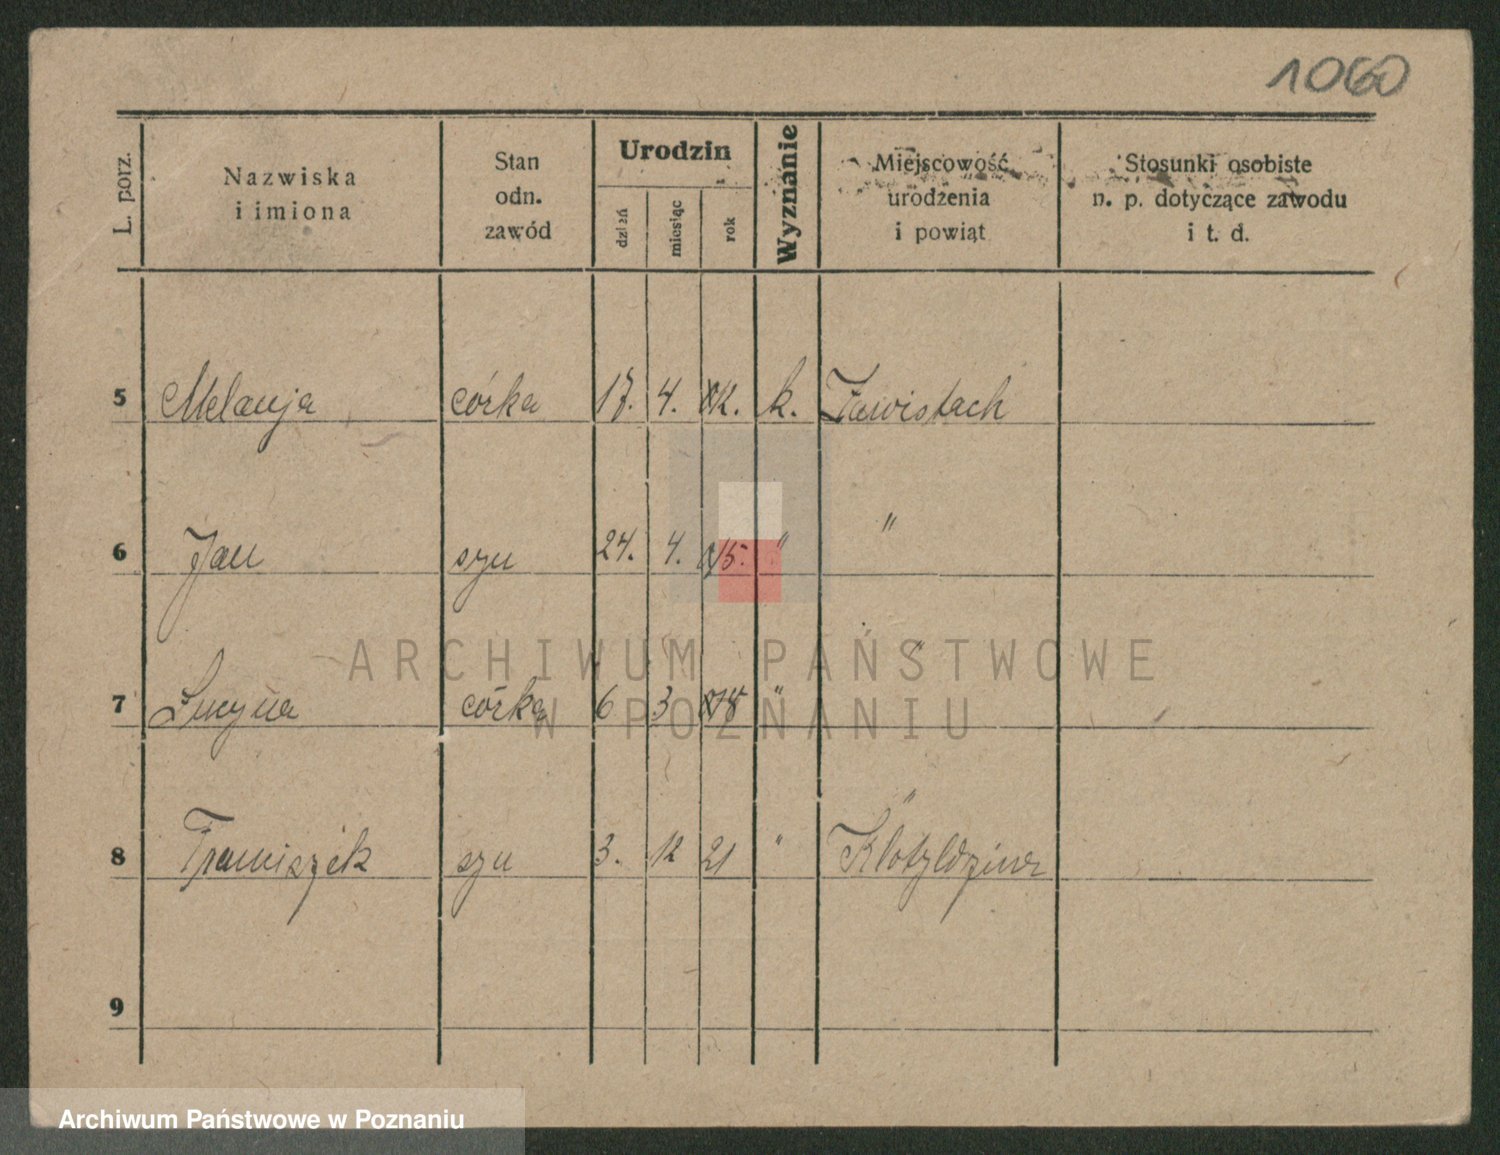 1060
L. porz.
Nazwiska
i imiona
Stan
odn.
zawód
Urodzin
dzień
miesiąc
rok
Wyznanie
Miejscowość
urodzenia
i powiąt
Stosunki osobiste
n. p. dotyczące zawodu
i t. d.
5 Melanja córka 17. 4. k.
6 Jan syn 24. 4. 15. " "
7 Lucyna córka 6 3 18 " "
8 Franciszek syn 3. 12 21 " Klotyldzina
9
ARCHIWUM PAŃSTWOWE
W POZNANIU
Archiwum Państwowe w Poznaniu